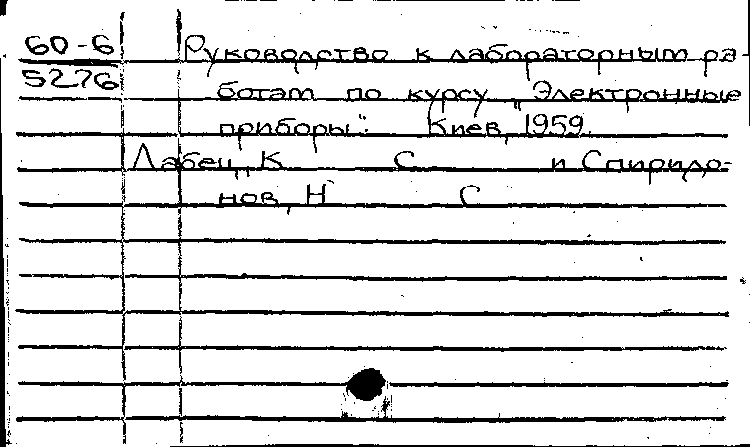 60-6
5276
Руководство к лабораторным ра-
ботам по курсу „Электронные
приборы". Киев, 1959.
Лабец, К С и Спиридо-
нов, Н С